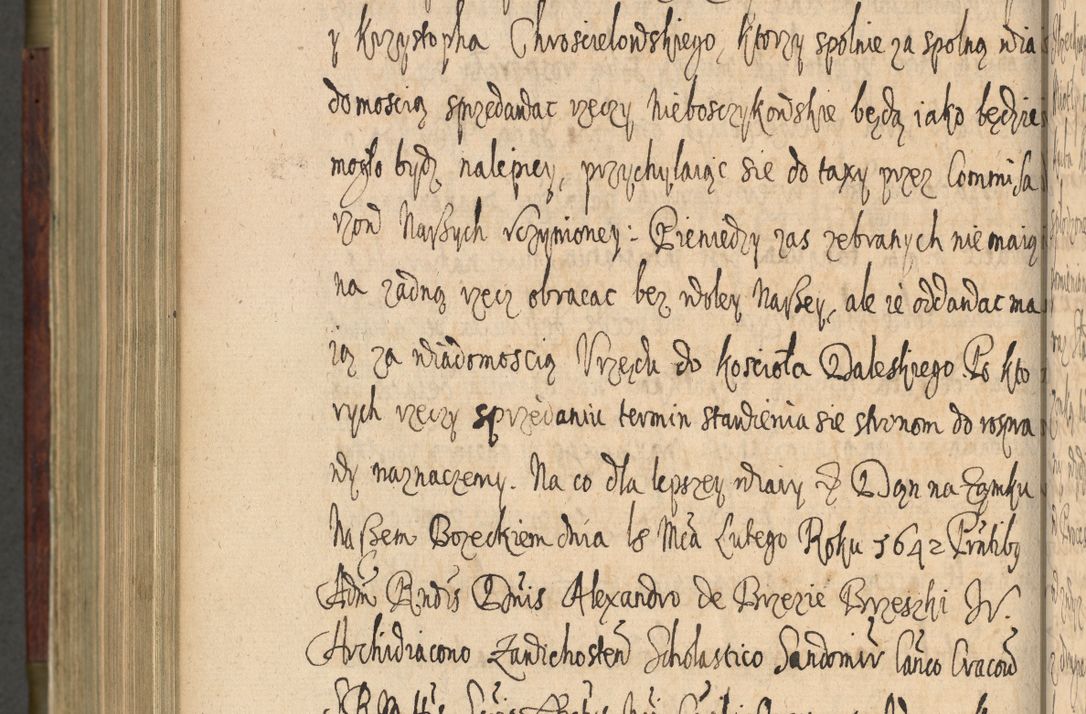 y Krzysztopha Chroscielowskiego, ktorzy spolnie za spolną wia
domoscią sprzedawac rzeczy nieboszczykowskie będą iako będzie
mogło bydz nalepiey, przychylaiąc sie do taxy przez Commissa
rzow Naszych vczynioney: Pieniedzy zas zebranych nie maią
na żadną rzecz obracac bez woley Naszey, ale ie oddawac ma
ią za wiadomoscią Vrzędu do koscioła Daleskiego Po kto
rych rzeczy sprzedaniu termin stawienia sie stronom do rospra
wy naznaczemy. Na co dla lepszey wiary Dan na Zamku
Naszem Bozeckiem dnia 18 Mca Lutego Roku 1642 Pntibq
Adm Rndis Dnis Alexandro de Brzezie Brzeski Jr.
Archidiacono Zawichosten Scholastico Sandomir Canco Cracow